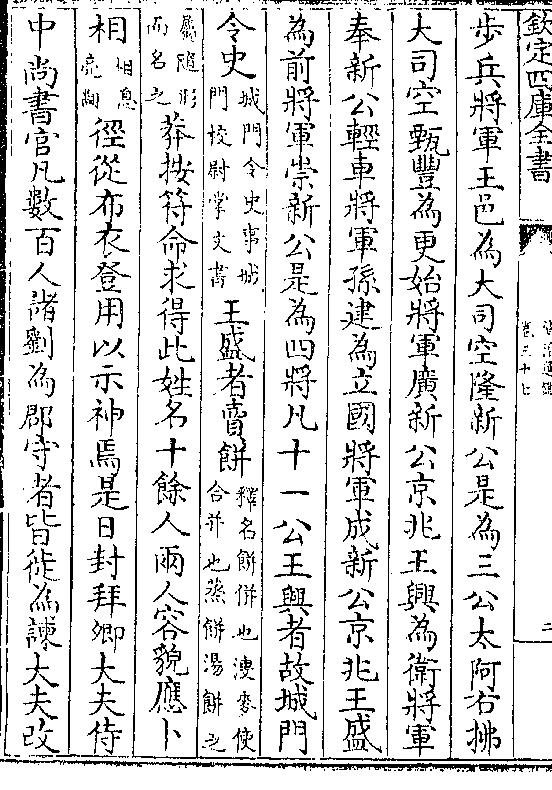 欽定四庫全書
資治通鑑
卷三十七
二
步兵將軍王邑為大司空隆新公是為三公太阿右拂
大司空甄豐為更始將軍廣新公京兆王興為衛將軍
奉新公輕車將軍孫建為立國將軍成新公京兆王盛
為前將軍崇新公是為四將凡十一公王興者故城門
令史城門令史事城門校尉掌文書王盛者賣餅釋名餅併也溲麥使合并也蒸餅湯餅之
屬隨形而名之莽按符命求得此姓名十餘人兩人容貌應卜
相相息亮翻徑從布衣登用以示神焉是日封拜卿大夫侍
中尚書官凡數百人諸劉為郡守者皆徙為諫大夫改